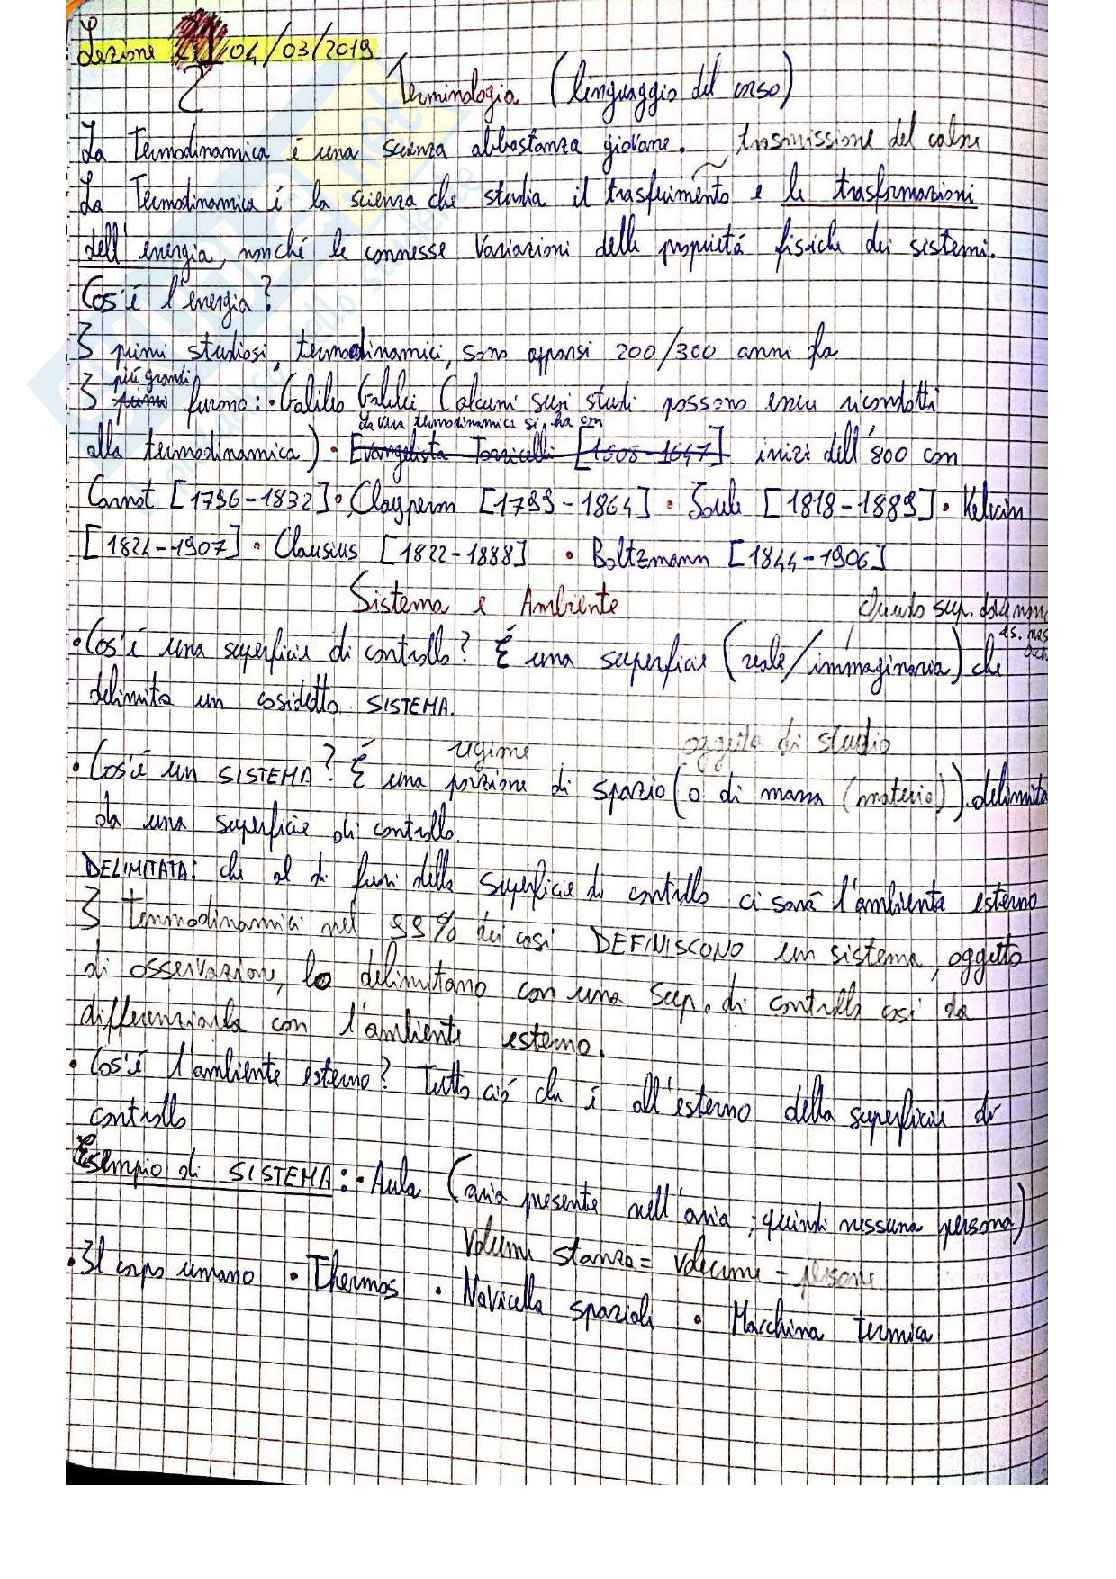 Lezione 2 04/03/2019
Terminologia (linguaggio del corso)
La Termodinamica è una scienza abbastanza giovane. trasmissione del calore
La Termodinamica è la scienza che studia il trasferimento e le trasformazioni
dell'energia, nonché le connesse variazioni delle proprietà fisiche dei sistemi.
Cos'è l'energia?
I primi studiosi, termodinamici, sono apparsi 200/300 anni fa
più grandi
I primi furono: • Galileo Galilei (alcuni suoi studi possono essere ricondotti
la vera termodinamica si ha con
alla termodinamica) • Evangelista Torricelli [1608-1647] inizi dell'800 con
Carnot [1796-1832] • Clayperon [1799-1864] • Joule [1818-1889] • Kelvin
[1824-1907] • Clausius [1822-1888] • Boltzmann [1844-1906]
Sistema e Ambiente
Quando sup.
• Cos'è una superficie di controllo? È una superficie (reale/immaginaria) che
delimita un cosidetto SISTEMA.
regime oggetto di studio
• Cos'è un SISTEMA? È una porzione di spazio (o di massa (materia)) delimitata
da una superficie di controllo.
DELIMITATA: che al di fuori della superficie di controllo ci sarà l'ambiente esterno
I termodinamici nel 99% dei casi DEFINISCONO un sistema, oggetto
di osservazione, lo delimitano con una sup. di controllo così da
differenziarlo con l'ambiente esterno.
• Cos'è l'ambiente esterno? Tutto ciò che è all'esterno della superficie di
controllo
Esempio di SISTEMA: • Aula (aria presente nell'aria; quindi nessuna persona)
Volume stanza = volume - persone
• Il corpo umano • Thermos • Navicella spaziale • Macchina termica